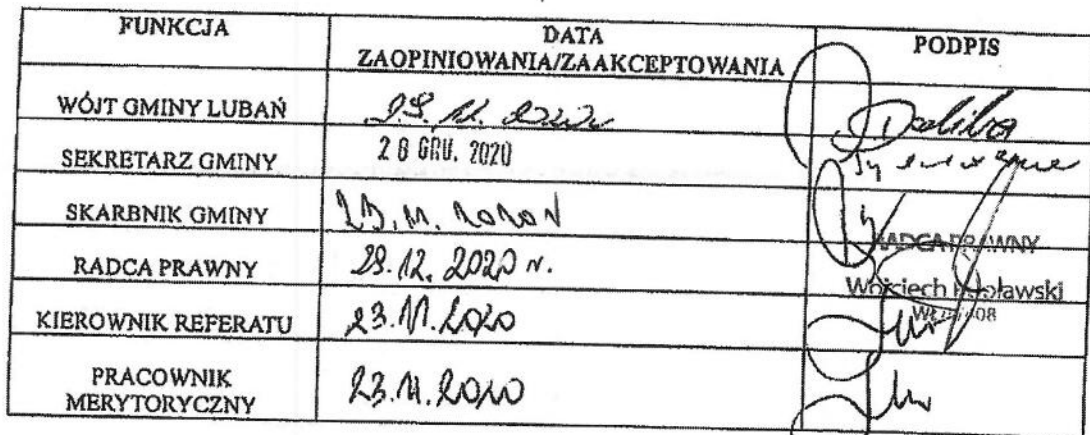 FUNKCJA
DATA
ZAOPINIOWANIA/ZAAKCEPTOWANIA
PODPIS
WÓJT GMINY LUBAŃ
29. 12. 2020r
SEKRETARZ GMINY
28 GRU. 2020
SKARBNIK GMINY
RADCA PRAWNY
29.12.2020 r.
RADCA PRAWNY
Wojciech
KIEROWNIK REFERATU
23.11.2020
PRACOWNIK
MERYTORYCZNY
23.11.2020